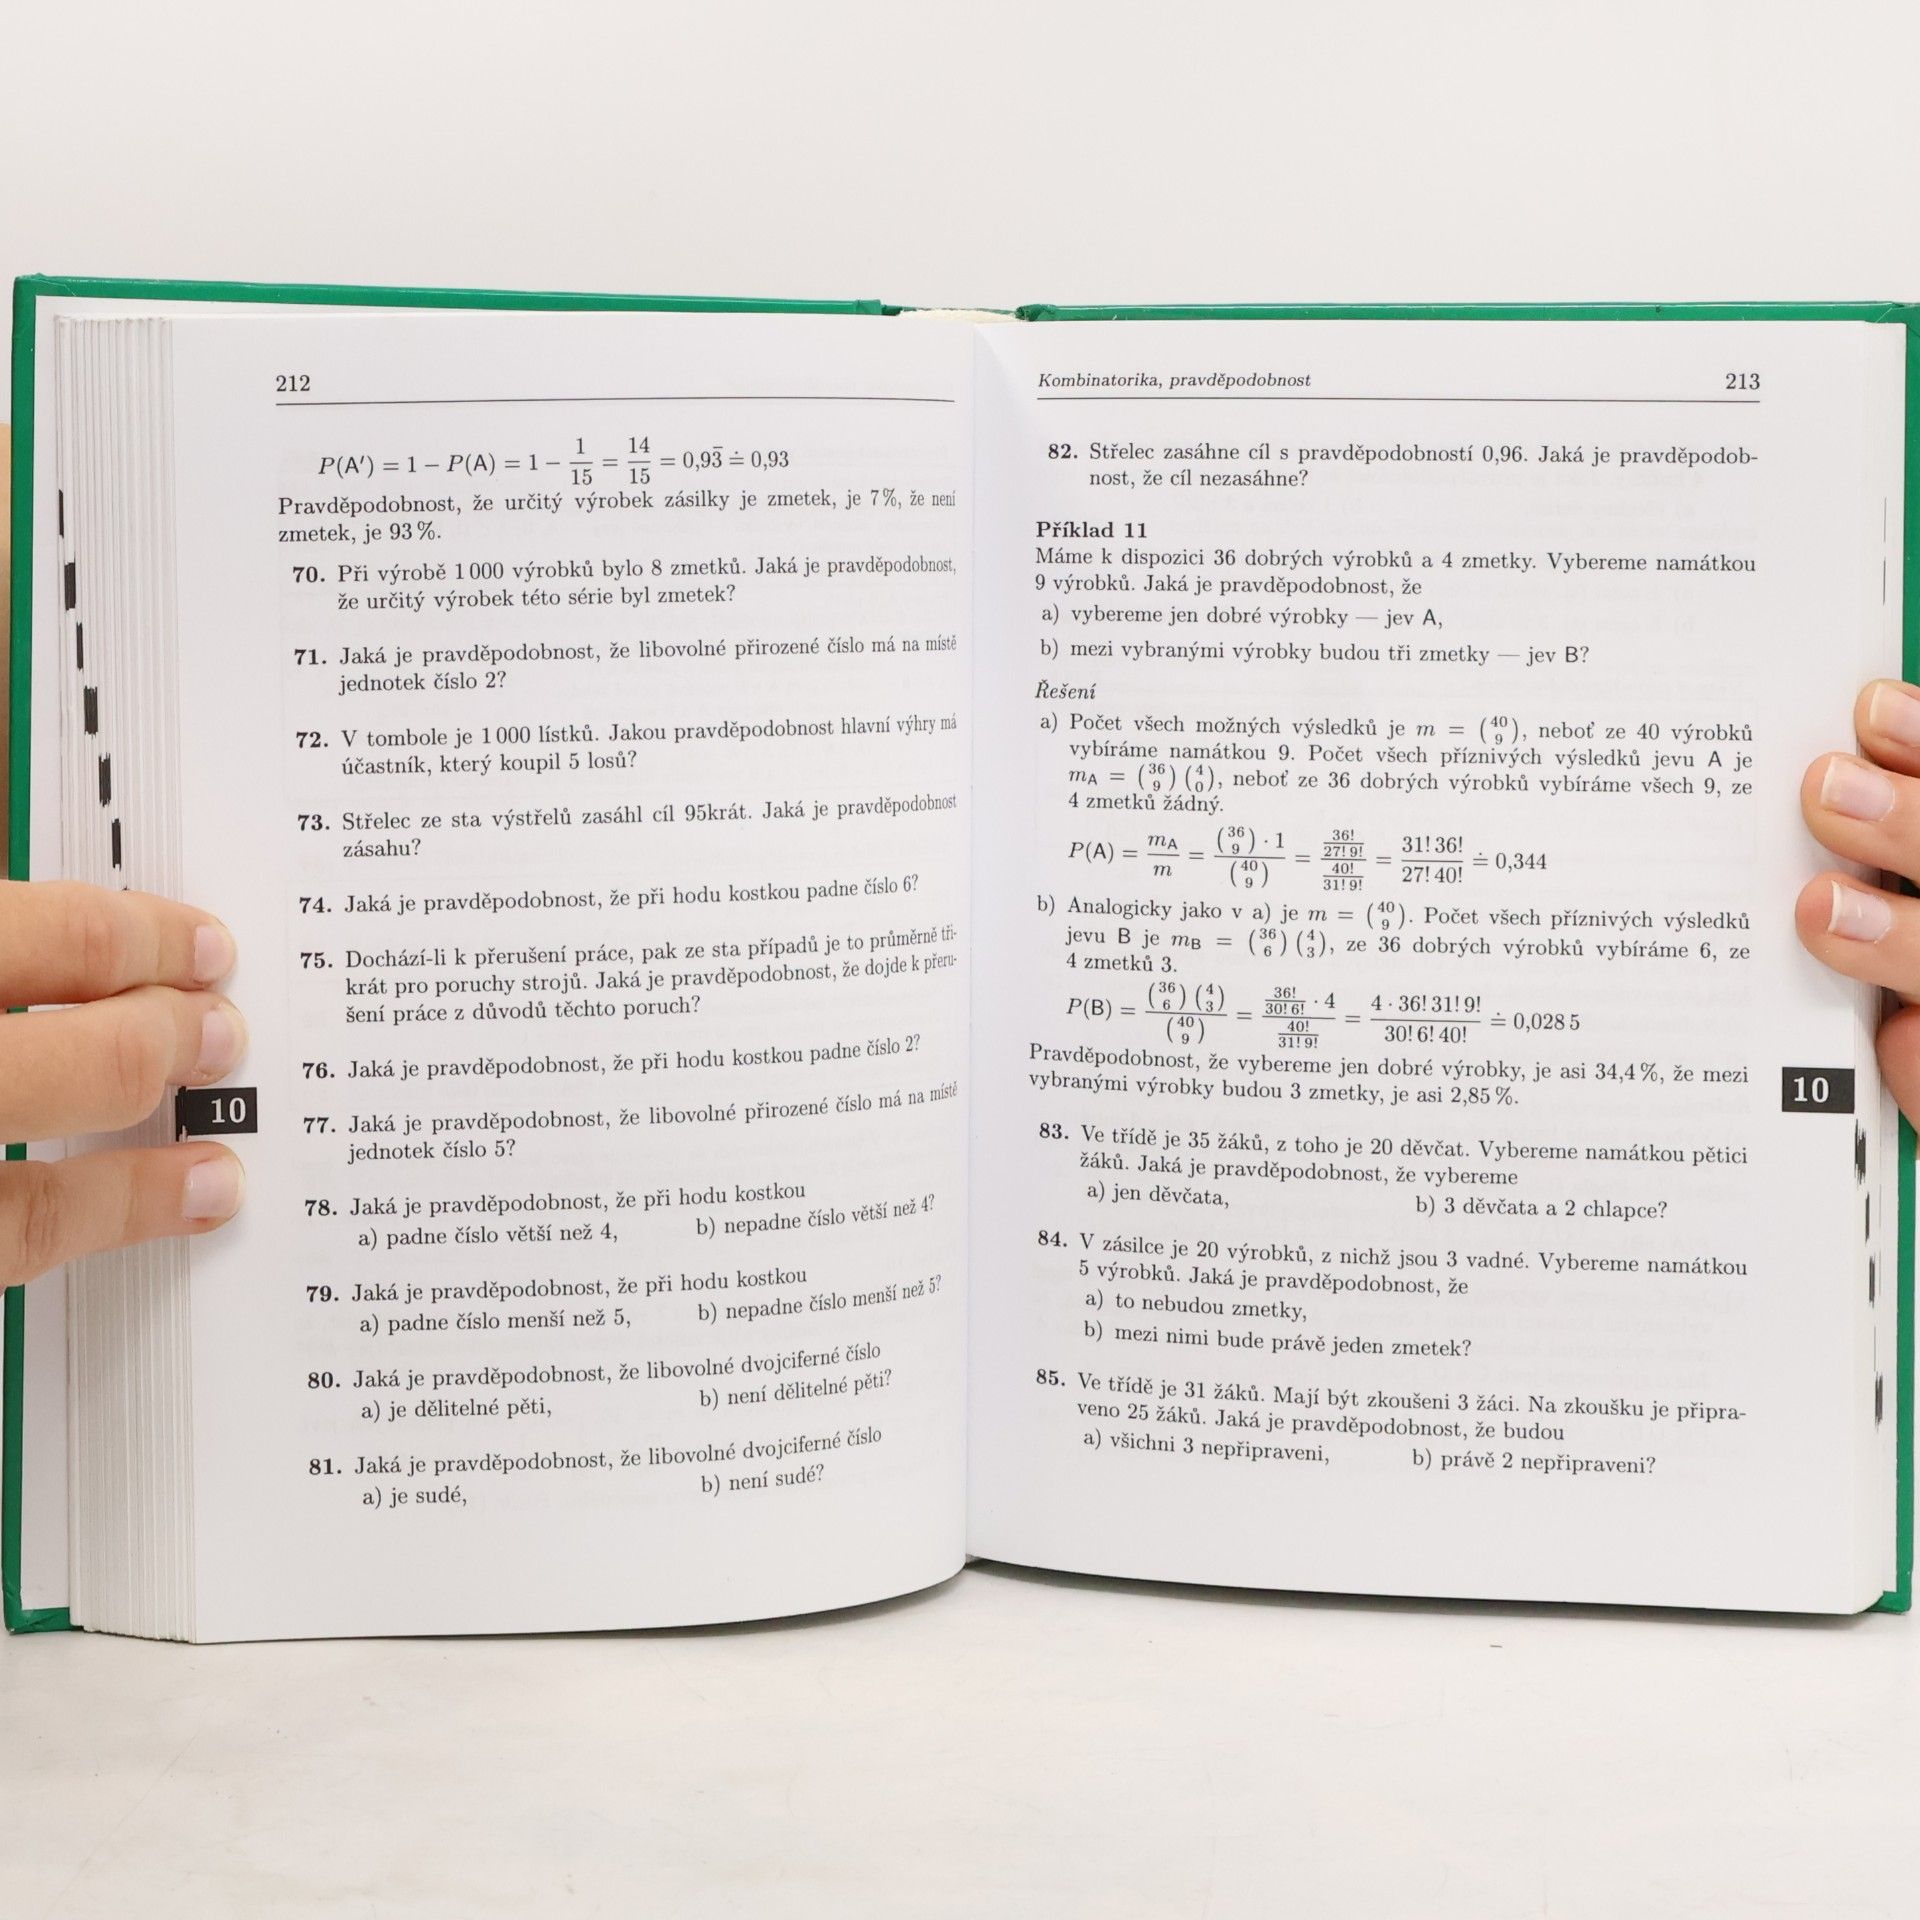 212
P(A′) = 1 − P(A) = 1 − 1/15 = 14/15 = 0,93̄ ≐ 0,93
Pravděpodobnost, že určitý výrobek zásilky je zmetek, je 7 %, že není
zmetek, je 93 %.
70. Při výrobě 1 000 výrobků bylo 8 zmetků. Jaká je pravděpodobnost,
že určitý výrobek této série byl zmetek?
71. Jaká je pravděpodobnost, že libovolné přirozené číslo má na místě
jednotek číslo 2?
72. V tombole je 1 000 lístků. Jakou pravděpodobnost hlavní výhry má
účastník, který koupil 5 losů?
73. Střelec ze sta výstřelů zasáhl cíl 95krát. Jaká je pravděpodobnost
zásahu?
74. Jaká je pravděpodobnost, že při hodu kostkou padne číslo 6?
75. Dochází-li k přerušení práce, pak ze sta případů je to průměrně tři-
krát pro poruchy strojů. Jaká je pravděpodobnost, že dojde k přeru-
šení práce z důvodů těchto poruch?
76. Jaká je pravděpodobnost, že při hodu kostkou padne číslo 2?
77. Jaká je pravděpodobnost, že libovolné přirozené číslo má na místě
jednotek číslo 5?
78. Jaká je pravděpodobnost, že při hodu kostkou
a) padne číslo větší než 4, b) nepadne číslo větší než 4?
79. Jaká je pravděpodobnost, že při hodu kostkou
a) padne číslo menší než 5, b) nepadne číslo menší než 5?
80. Jaká je pravděpodobnost, že libovolné dvojciferné číslo
a) je dělitelné pěti, b) není dělitelné pěti?
81. Jaká je pravděpodobnost, že libovolné dvojciferné číslo
a) je sudé, b) není sudé?
10
Kombinatorika, pravděpodobnost 213
82. Střelec zasáhne cíl s pravděpodobností 0,96. Jaká je pravděpodob-
nost, že cíl nezasáhne?
Příklad 11
Máme k dispozici 36 dobrých výrobků a 4 zmetky. Vybereme namátkou
9 výrobků. Jaká je pravděpodobnost, že
a) vybereme jen dobré výrobky — jev A,
b) mezi vybranými výrobky budou tři zmetky — jev B?
Řešení
a) Počet všech možných výsledků je m = (40 9), neboť ze 40 výrobků
vybíráme namátkou 9. Počet všech příznivých výsledků jevu A je
mA = (36 9) (4 0), neboť ze 36 dobrých výrobků vybíráme všech 9, ze
4 zmetků žádný.
P(A) = mA/m = (36 9) · 1 / (40 9) = (36!/27! 9!) / (40!/31! 9!) = 31! 36! / 27! 40! ≐ 0,344
b) Analogicky jako v a) je m = (40 9). Počet všech příznivých výsledků
jevu B je mB = (36 6) (4 3), ze 36 dobrých výrobků vybíráme 6, ze
4 zmetků 3.
P(B) = (36 6) (4 3) / (40 9) = (36!/30! 6! · 4) / (40!/31! 9!) = 4 · 36! 31! 9! / 30! 6! 40! ≐ 0,028 5
Pravděpodobnost, že vybereme jen dobré výrobky, je asi 34,4 %, že mezi
vybranými výrobky budou 3 zmetky, je asi 2,85 %.
83. Ve třídě je 35 žáků, z toho je 20 děvčat. Vybereme namátkou pětici
žáků. Jaká je pravděpodobnost, že vybereme
a) jen děvčata, b) 3 děvčata a 2 chlapce?
84. V zásilce je 20 výrobků, z nichž jsou 3 vadné. Vybereme namátkou
5 výrobků. Jaká je pravděpodobnost, že
a) to nebudou zmetky,
b) mezi nimi bude právě jeden zmetek?
85. Ve třídě je 31 žáků. Mají být zkoušeni 3 žáci. Na zkoušku je připra-
veno 25 žáků. Jaká je pravděpodobnost, že budou
a) všichni 3 nepřipraveni, b) právě 2 nepřipraveni?
10